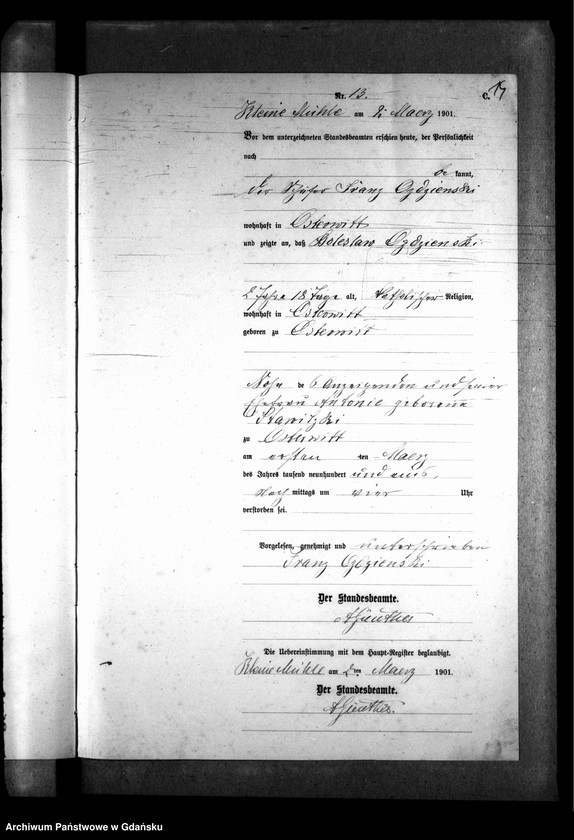 Nr. 13.
C. 17
Kleine Mühle am 2. Maerz 1901.
Vor dem unterzeichneten Standesbeamten erschien heute, der Persönlichkeit
nach
be kannt,
der Franz Ogdzienski
wohnhaft in Osterwitt
und zeigte an, daß Boleslaw Ogdzienski
2 Jahre 18 Tage alt, katholischer Religion,
wohnhaft in Osterwitt
geboren zu Osterwitt
Sohn des Anzeigenden und seiner
Ehefrau Antonie geborene
Stawitzki
zu Osterwitt
am ersten ten Maerz
des Jahres tausend neunhundert und eins,
Nach mittags um vier Uhr
verstorben sei.
Vorgelesen, genehmigt und unterschrieben
Franz Ogdzienski
Der Standesbeamte.
AGünther
Die Uebereinstimmung mit dem Haupt-Register beglaubigt.
Kleine Mühle am 2ten Maerz 1901.
Der Standesbeamte.
AGünther.
Archiwum Państwowe w Gdańsku